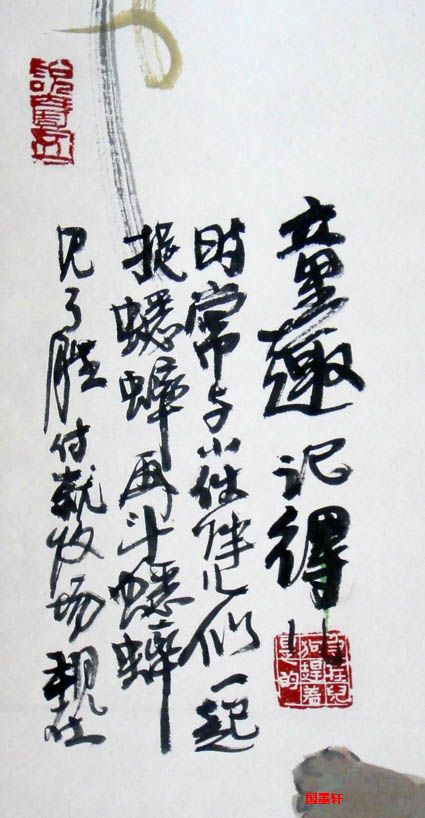 童趣 记得儿
时常与小伙伴儿们一起
捉蟋蟀再斗蟋蟀
见了胜付就收场
国墨轩